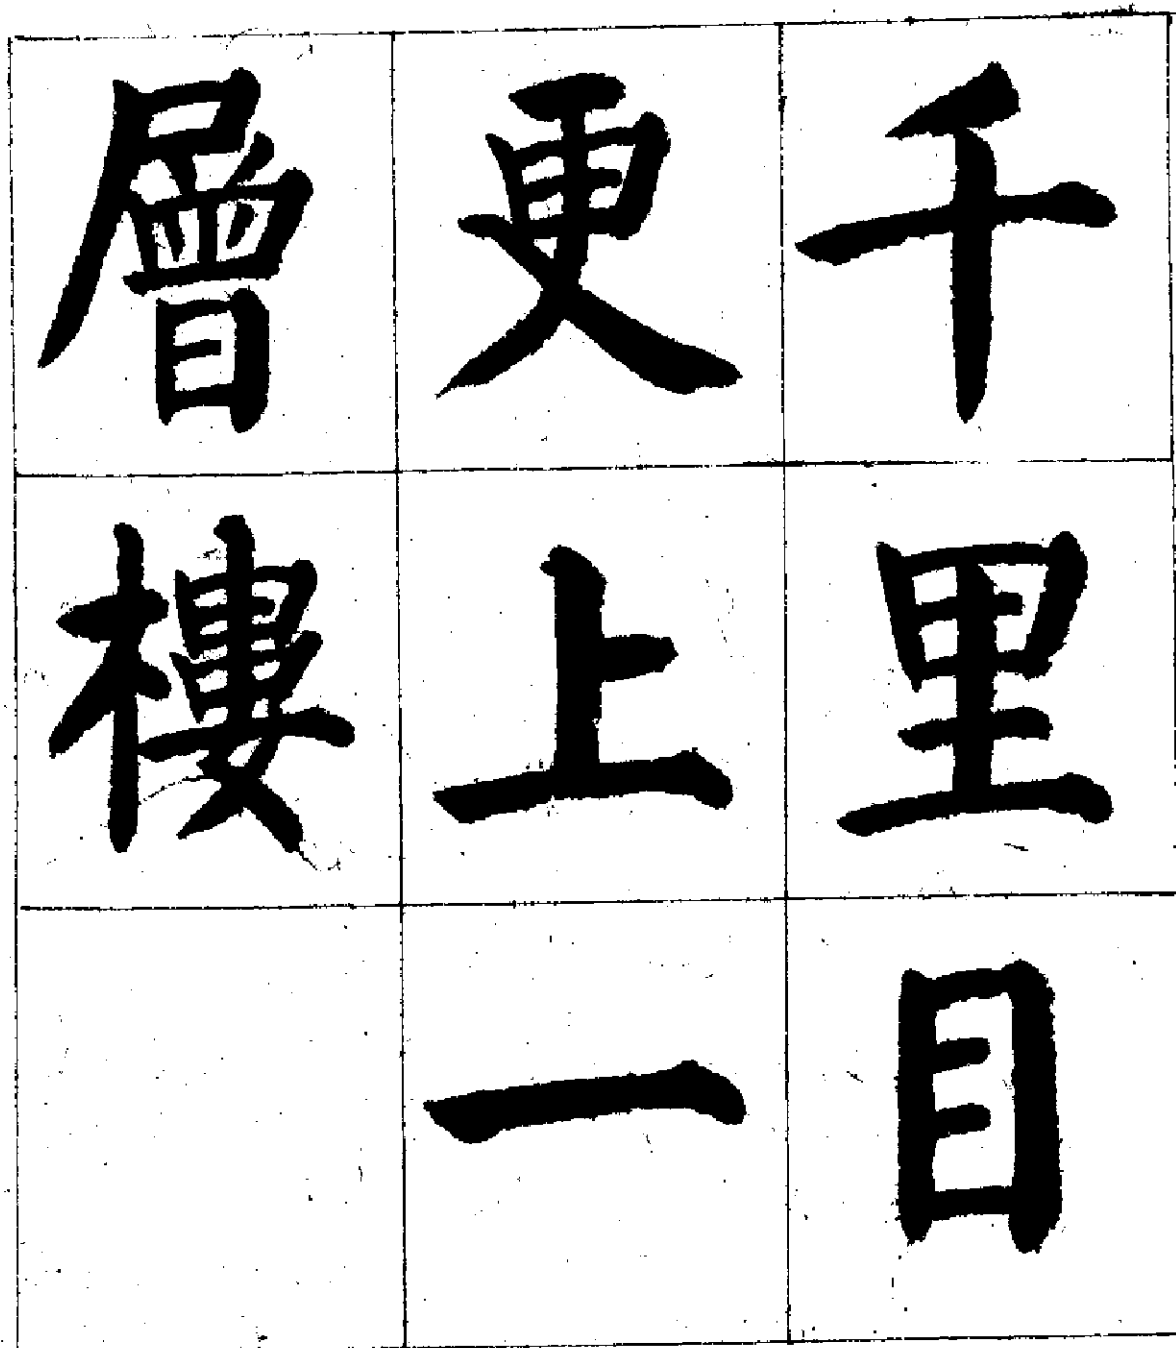 千里目
更上一
層樓